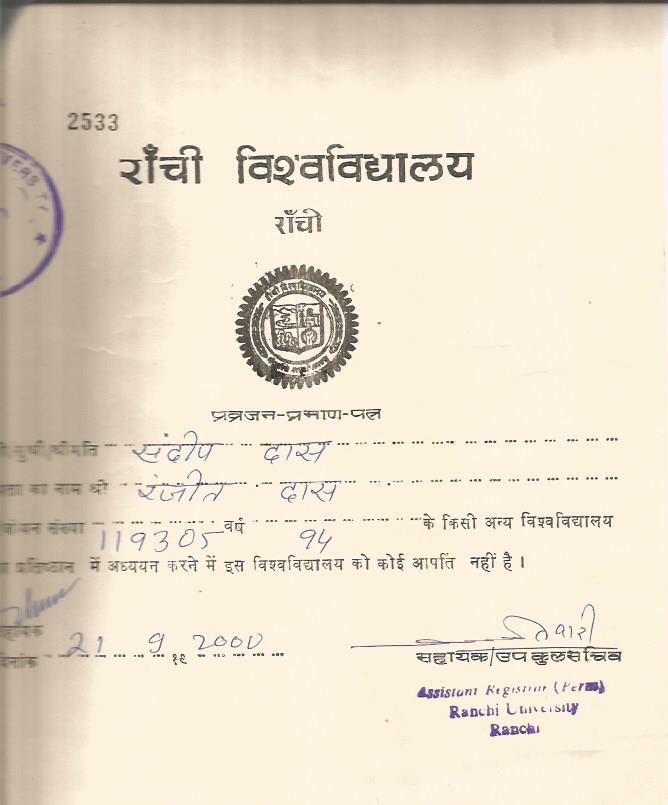 2533
VERSITY
राँची विश्वविद्यालय
राँची
राँची विश्वविद्यालय
प्रव्रजन-प्रमाण-पत्र
/सुश्री/श्रीमति संदीप दास
ता का नाम श्री रंजीत दास
जीयन संख्या 119305 वर्ष 94 के किसी अन्य विश्वविद्यालय
प्रतिष्ठान में अध्ययन करने में इस विश्वविद्यालय को कोई आपत्ति नहीं है।
हायक
नांक 21 9 १९ 2000
तिवारी
सहायक/उप कुलसचिव
Assistant Registrar (Perm)
Ranchi University
Ranchi